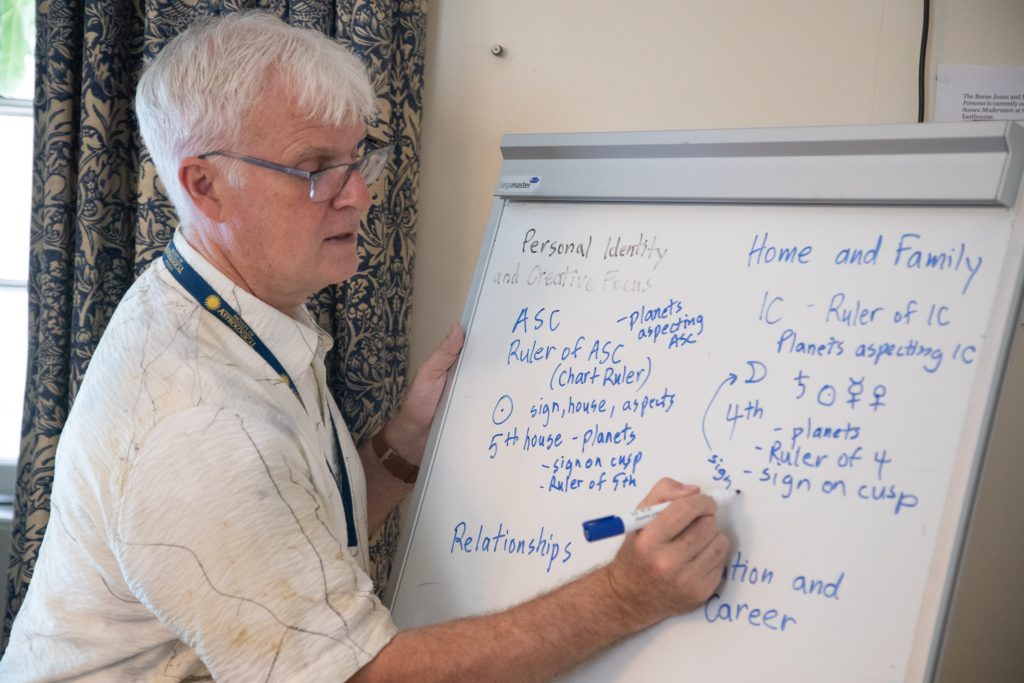 The Burne Jones and
Pomona is currently
Sussex Modernism at
Eastbourne.
Legamaster
ASTROLOGICAL
Personal Identity
and Creative Focus
ASC
- planets
aspecting
ASC
Ruler of ASC
(Chart Ruler)
☉ sign, house, aspects
5th house - planets
- sign on cusp
- Ruler of 5th
Relationships
Home and Family
IC - Ruler of IC
Planets aspecting IC
☽ ♄ ☉ ☿ ♀
4th
- planets
- Ruler of 4
- sign on cusp
sign
tion and
Career